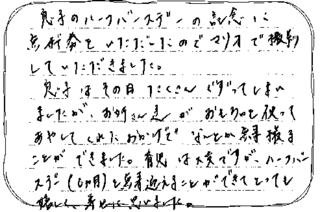 息子のハーフバースデーの記念に
無料券をいただいたのでマリオで撮影
していただきました。
息子はその日たくさんぐずってしまい
ましたが、お姉さん達がおもちゃを使って
あやしてくれたおかげでなんとか無事撮る
ことができました。育児は大変ですが、ハーフバー
スデー(6ヶ月)を無事迎えることができてとても
嬉しく、幸せに思いました。